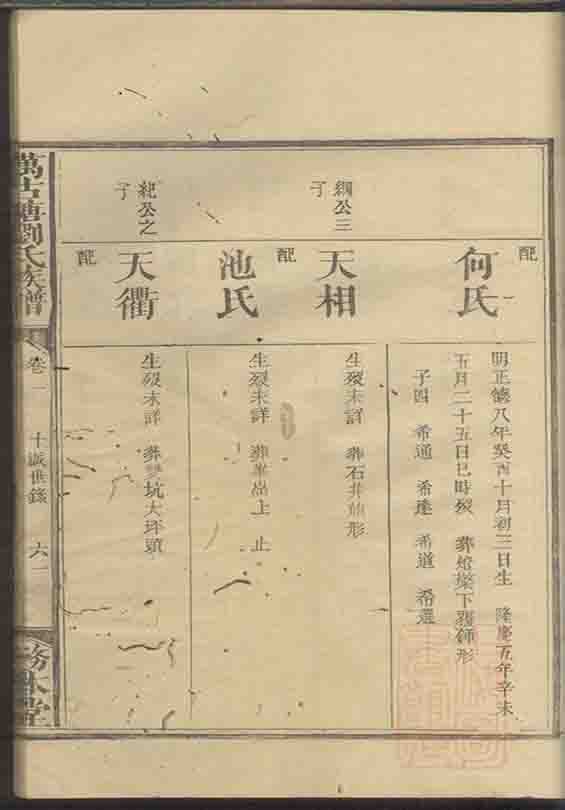 配
何氏
明正德八年癸酉十月初三日生 隆慶五年辛未
五月二十五日巳時歿 葬燈樑下覆鍾形
子四 希通 希達 希道 希選
綱公三
子
天相
生歿未詳 葬石井魚形
配
池氏
生歿未詳 葬 上 止
紀公之
子
天衢
生歿未詳 葬 坑大坪頭
配
萬古塘劉氏族譜
卷一
十 世錄
六一
務本堂